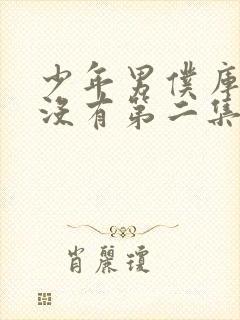 少年男僕庫
沒有第二集
肖麗瓊